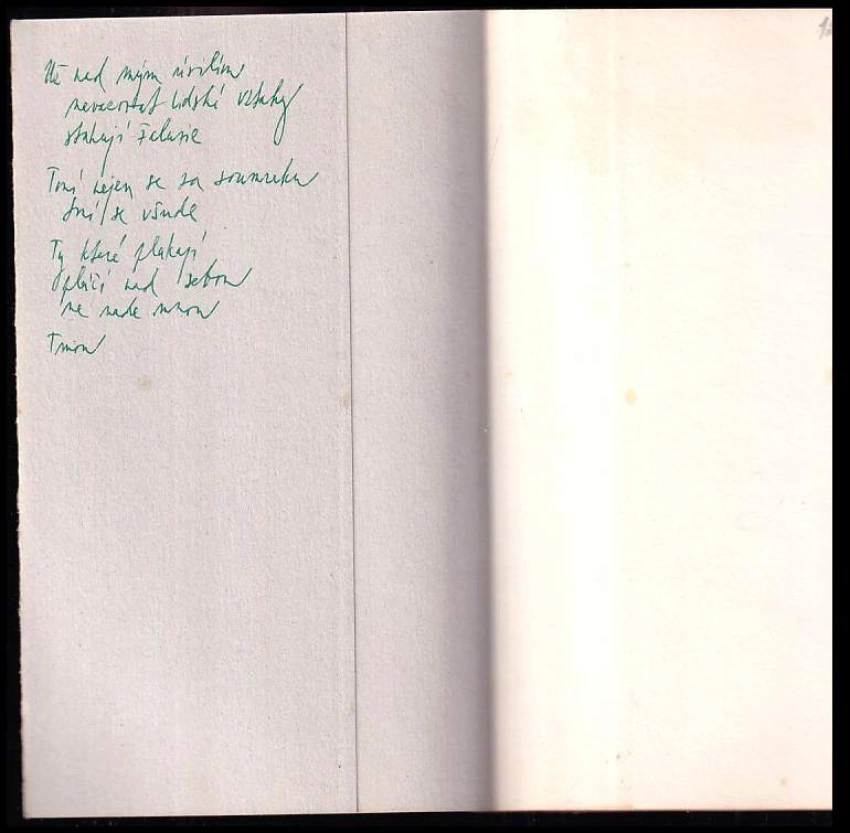 Už nad mým úsilím
nevzcestat lidské vztahy
stahují žaluzie
Tmí nejen se za soumraku
tmí se všude
Ty které plakají
pláčí nad sebou
ne nade mnou
Tmou